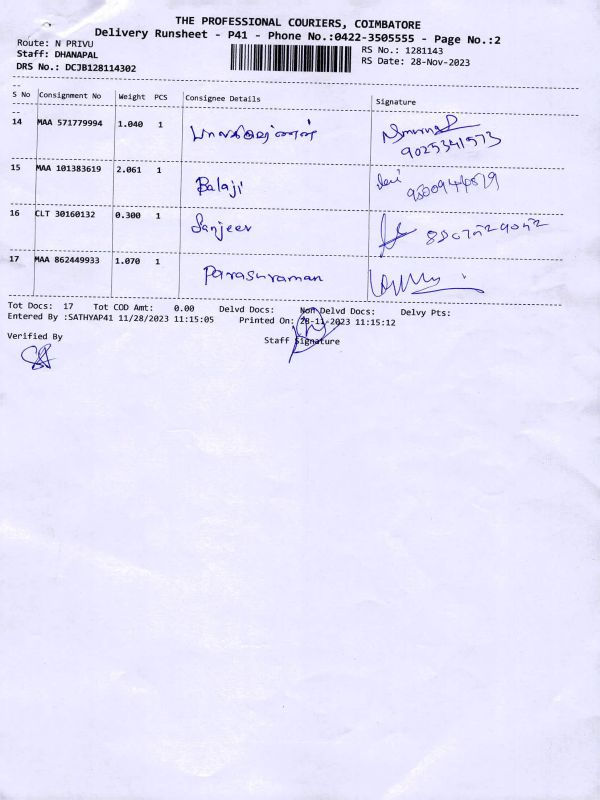 THE PROFESSIONAL COURIERS, COIMBATORE
Delivery Runsheet - P41 - Phone No.:0422-3505555 - Page No.:2
Route: N PRIVU RS No.: 1281143
Staff: DHANAPAL RS Date: 28-Nov-2023
DRS No.: DCJB128114302
S No Consignment No Weight PCS Consignee Details Signature
14 MAA 571779994 1.040 1 பாலகிருஷ்ணன்
9025341573
15 MAA 101383619 2.061 1 Balaji
16 CLT 30160132 0.300 1 Sanjeev
17 MAA 862449933 1.070 1 Parasuraman
Tot Docs: 17 Tot COD Amt: 0.00 Delvd Docs: Non Delvd Docs: Delvy Pts:
Entered By :SATHYAP41 11/28/2023 11:15:05 Printed On: 28-11-2023 11:15:12
Verified By Staff Signature